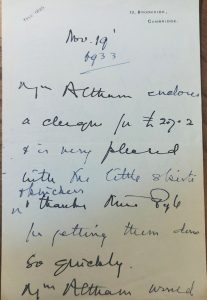 CAMBRIDGE.
Nov. 19
1933
Altham encloses
a cheque for £
& is very pleased
with the little skirts
& knickers
thanks Miss Pyle
for getting them done
so quickly.
Altham would